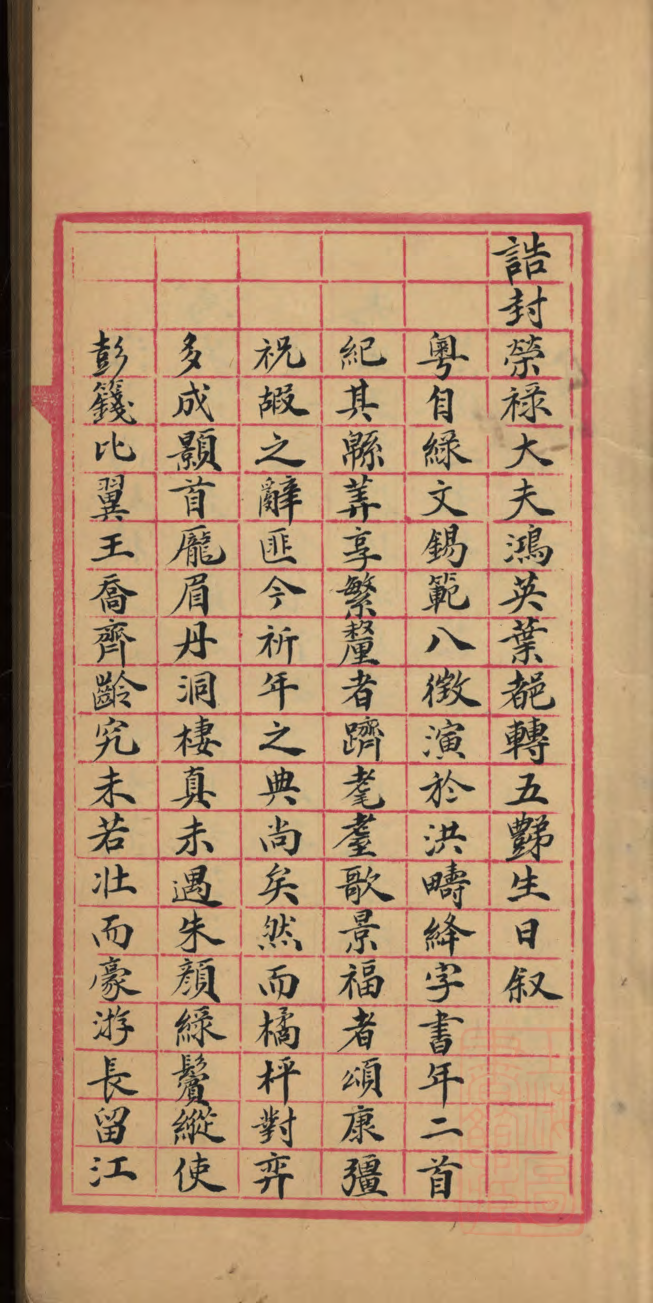 誥封榮祿大夫鴻英葉都轉五豑生日叙
粵自綠文錫範八徵演於洪疇絳字書年二首
紀其緜筭享繁釐者躋耄耋歌景福者頌康彊
祝嘏之辭匪今祈年之典尚矣然而橘枰對弈
多成顥首厖眉丹洞棲真未遇朱顏綠鬢縱使
彭籛比翼王喬齊齡究未若壯而豪游長留江